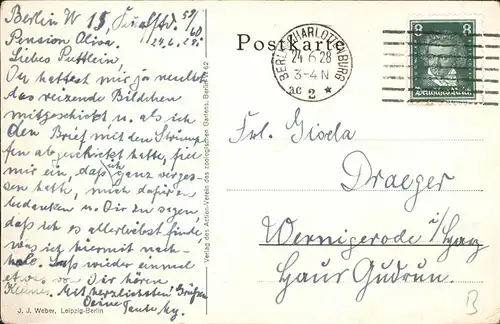 Berlin W 15,
Pension Oliva. 24.6.28
Liebes Puttlein,
Du hattest mir ja neulich
das reizende Bildchen
mitgeschickt u. als ich
den Brief mit den Strümp-
fen abgeschickt hatte, fiel
mir ein, daß ich ganz verges-
sen hatte, mich dafür zu
bedanken u. Dir zu sagen
daß ich es allerliebst finde
was ich hiermit nach-
hole. Laß wieder einmal
etwas von Dir hören
Kleines. Mit herzlichsten Grüßen
Deine Tante
J. J. Weber, Leipzig-Berlin
Verlag des Actien-Verein des zoologischen Gartens, Berlin W 62
Postkarte
BERLIN-CHARLOTTENBURG
24.6.28
3-4 N
ac 2 *
8 8
Deutsches Reich
Frl. Gisela
Draeger
Wernigerode i/Harz
Haus Gudrun.